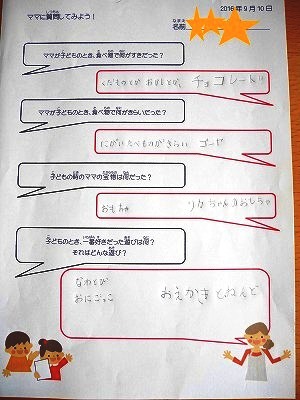 ママに質問してみよう!
しつもん
2016年9月10日
なまえ
名前
ママが子どものとき、食べ物で何がすきだった?
くだものとか おかしとか、チョコレート
ママが子どものとき、食べ物で何がきらいだった?
にがいたべものがきらい ゴーヤ
子どもの時のママの宝物は何だった?
おもちゃ リカちゃんのおもちゃ
子どものとき、一番好きだった遊びは何?
それはどんな遊び?
なわとび
おにごっこ おえかきとねんど